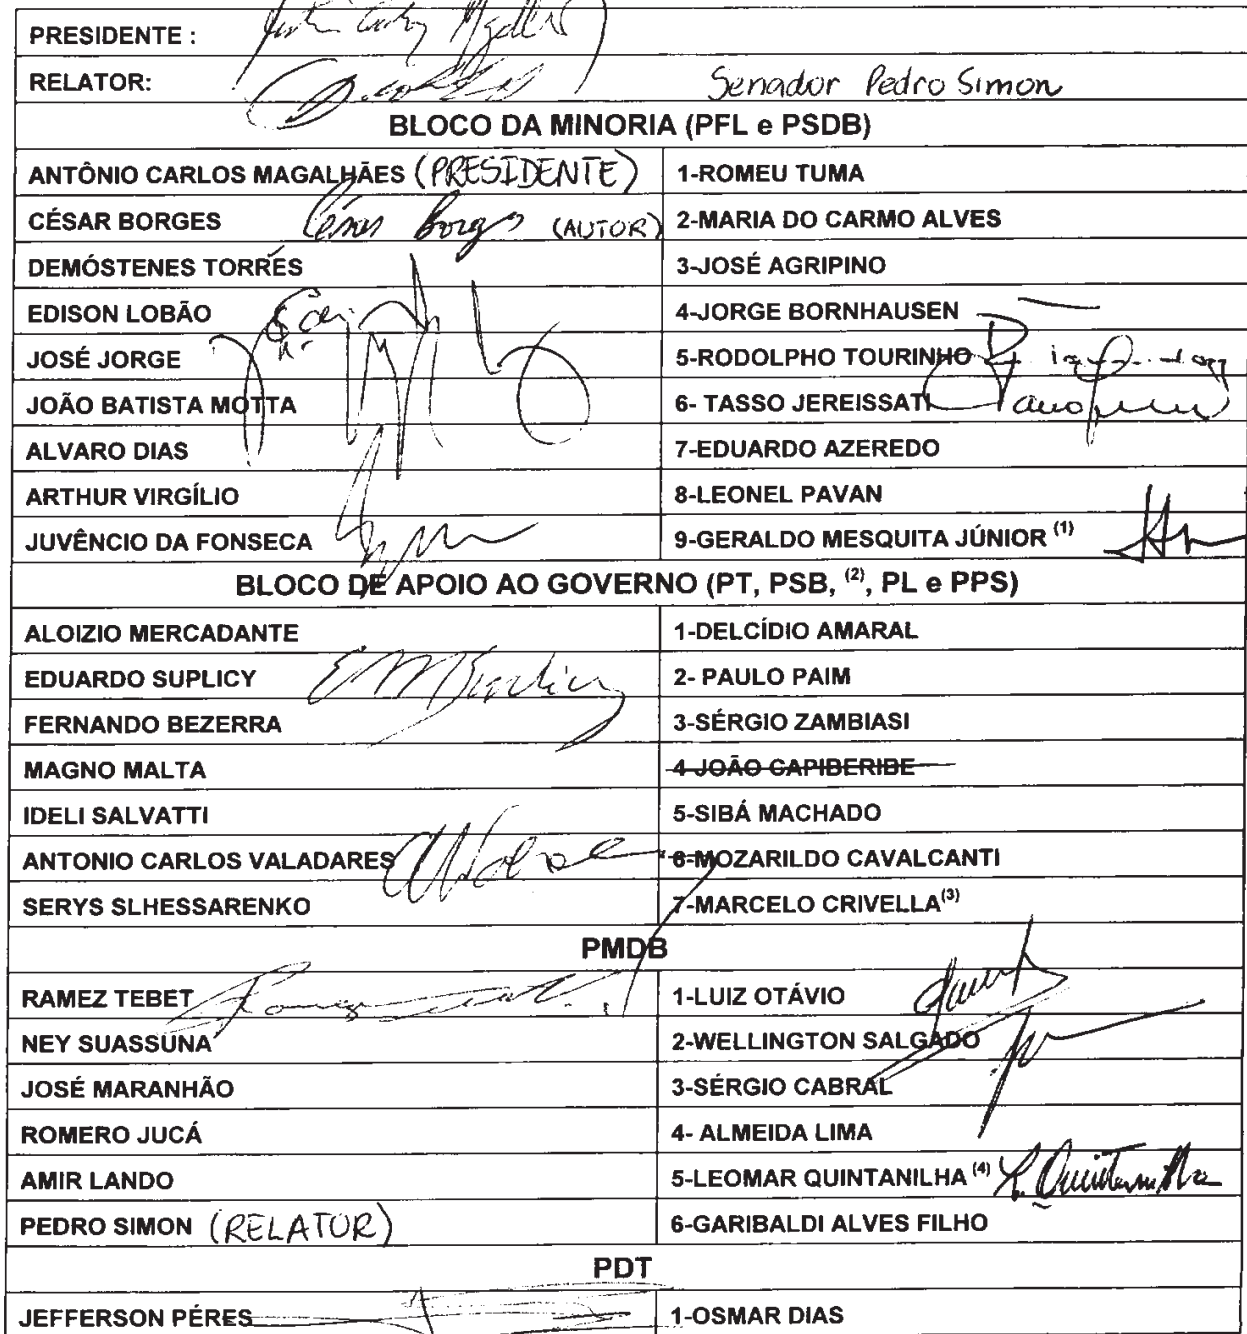 PRESIDENTE :
RELATOR: Senador Pedro Simon
BLOCO DA MINORIA (PFL e PSDB)
ANTÔNIO CARLOS MAGALHÃES (PRESIDENTE) 1-ROMEU TUMA
CÉSAR BORGES César Borges (AUTOR) 2-MARIA DO CARMO ALVES
DEMÓSTENES TORRES 3-JOSÉ AGRIPINO
EDISON LOBÃO 4-JORGE BORNHAUSEN
JOSÉ JORGE 5-RODOLPHO TOURINHO
JOÃO BATISTA MOTTA 6- TASSO JEREISSATI
ALVARO DIAS 7-EDUARDO AZEREDO
ARTHUR VIRGÍLIO 8-LEONEL PAVAN
JUVÊNCIO DA FONSECA 9-GERALDO MESQUITA JÚNIOR (1)
BLOCO DE APOIO AO GOVERNO (PT, PSB, (2), PL e PPS)
ALOIZIO MERCADANTE 1-DELCÍDIO AMARAL
EDUARDO SUPLICY 2- PAULO PAIM
FERNANDO BEZERRA 3-SÉRGIO ZAMBIASI
MAGNO MALTA 4-JOÃO CAPIBERIBE
IDELI SALVATTI 5-SIBÁ MACHADO
ANTONIO CARLOS VALADARES 6-MOZARILDO CAVALCANTI
SERYS SLHESSARENKO 7-MARCELO CRIVELLA(3)
PMDB
RAMEZ TEBET 1-LUIZ OTÁVIO
NEY SUASSUNA 2-WELLINGTON SALGADO
JOSÉ MARANHÃO 3-SÉRGIO CABRAL
ROMERO JUCÁ 4- ALMEIDA LIMA
AMIR LANDO 5-LEOMAR QUINTANILHA (4) L. Quintanilha
PEDRO SIMON (RELATOR) 6-GARIBALDI ALVES FILHO
PDT
JEFFERSON PÉRES 1-OSMAR DIAS